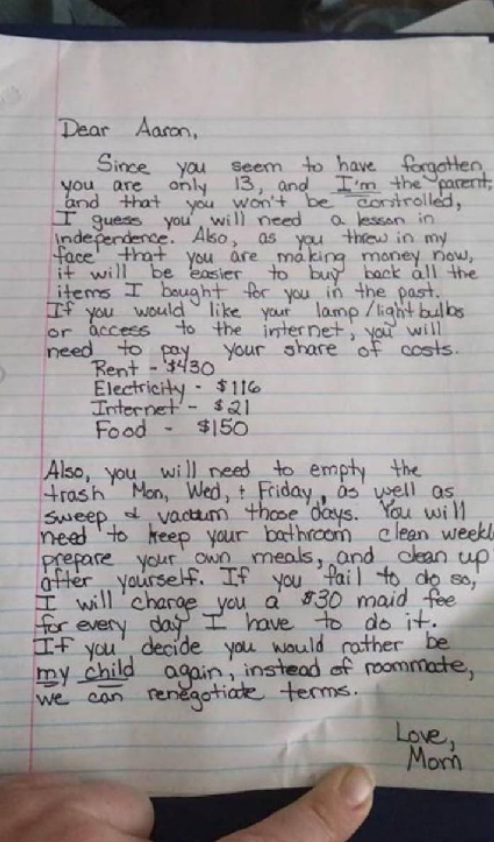 Dear Aaron,
Since you seem to have forgotten
you are only 13, and I'm the parent,
and that you won't be controlled,
I guess you will need a lesson in
independence. Also, as you threw in my
face that you are making money now,
it will be easier to buy back all the
items I bought for you in the past.
If you would like your lamp/lightbulbs
or access to the internet, you will
need to pay your share of costs.
Rent - $430
Electricity - $116
Internet - $21
Food - $150
Also, you will need to empty the
trash Mon, Wed, + Friday, as well as
sweep & vacuum those days. You will
need to keep your bathroom clean weekl
prepare your own meals, and clean up
after yourself. If you fail to do so,
I will charge you a $30 maid fee
for every day I have to do it.
If you decide you would rather be
my child again, instead of roommate,
we can renegotiate terms.
Love,
Mom